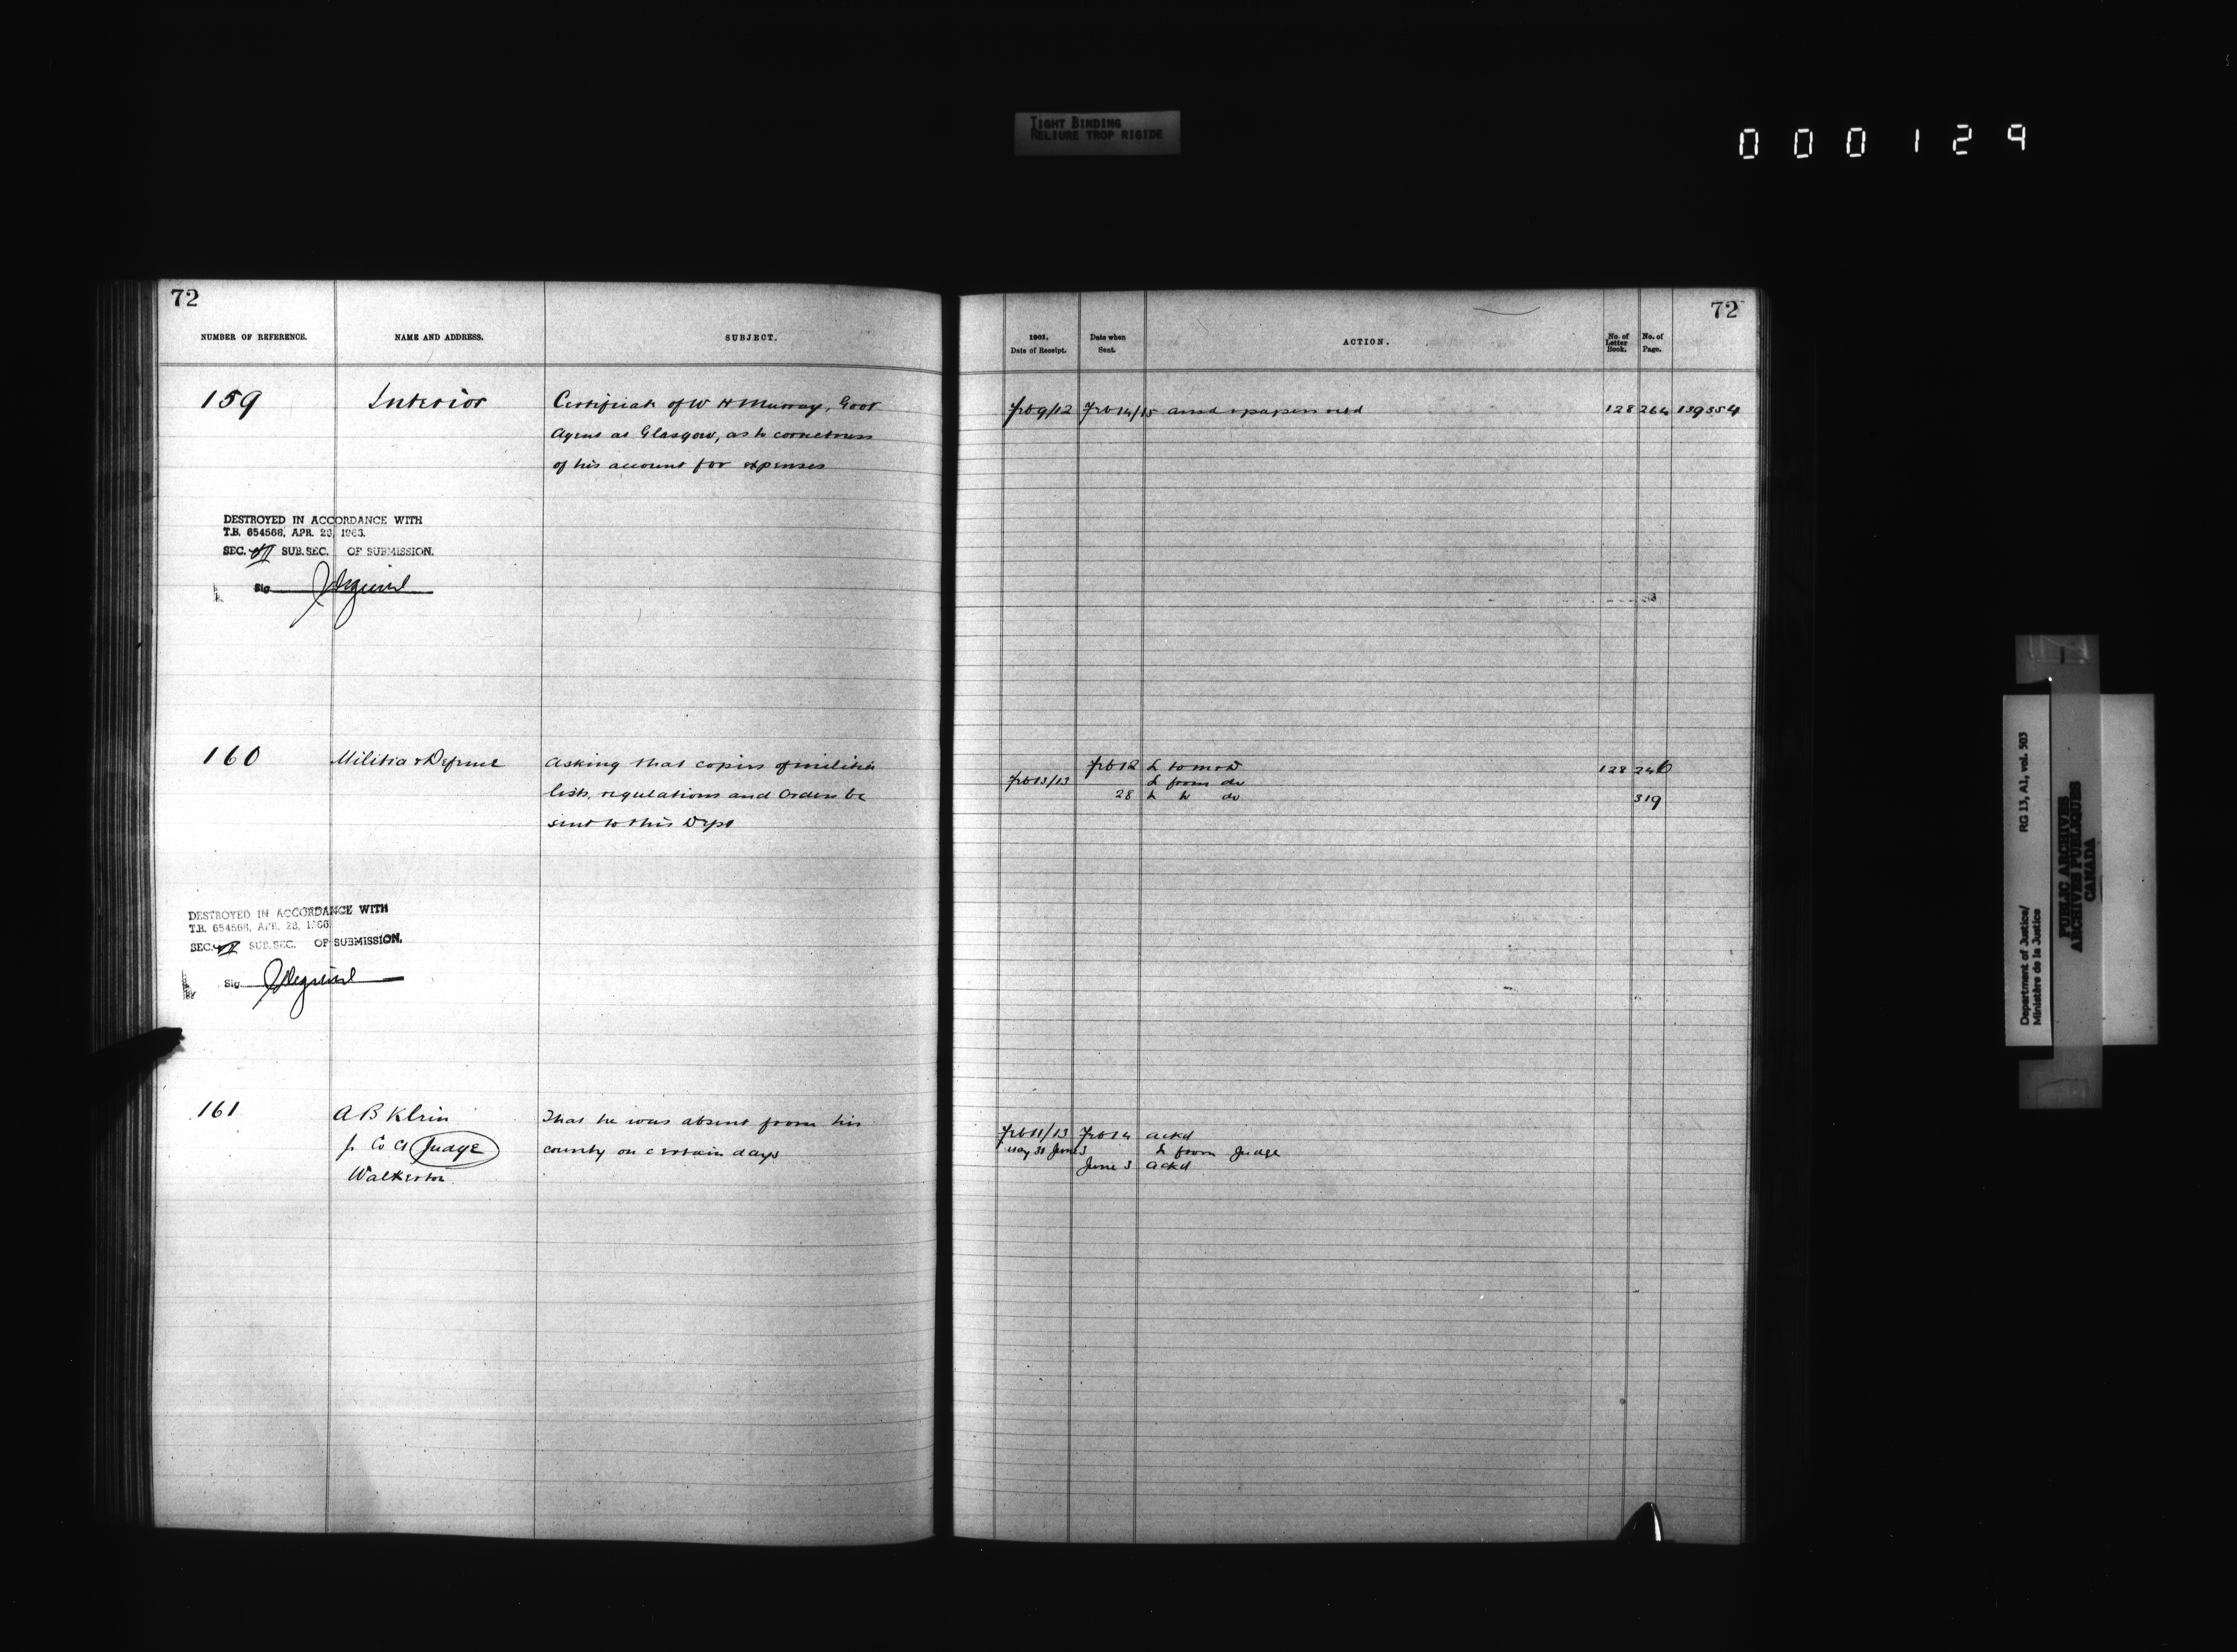 TIGHT BINDING
RELIURE TROP RIGIDE
000129
72
NUMBER OF REFERENCE.
NAME AND ADDRESS.
SUBJECT.
159
Interior
Certificate of W H Murray, Govt
Agent at Glasgow, as to correctness
of his account for expenses
DESTROYED IN ACCORDANCE WITH
T.B. 654568, APR. 23, 1963.
SEC. SUB.SEC. OF SUBMISSION.
Sig
160
Militia & Defence
Asking that copies of militia
lists, regulations and Orders be
sent to this Dept
DESTROYED IN ACCORDANCE WITH
T.B. 654568, APR. 23,
SEC. SUB.SEC. OF SUBMISSION.
Sig
161
A B Klein
J. Co Ct Judge
Walkerton
That he was absent from his
county on certain days
72
1901.
Date of Receipt.
Date when
Sent.
ACTION.
No. of
Letter
Book.
No. of
Page.
Feb 9/12 Feb 14/15 ansd & papers retd 128 264 139354
Feb 12 L to M & D 128 246
Feb 13/13 L from do
28 L to do 319
Feb 11/13 Feb 14 ackd
May 31 June 3 L from Judge
June 3 ackd
Department of Justice/ RG 13, A1, vol. 503
Ministère de la Justice
PUBLIC ARCHIVES
ARCHIVES PUBLIQUES
CANADA